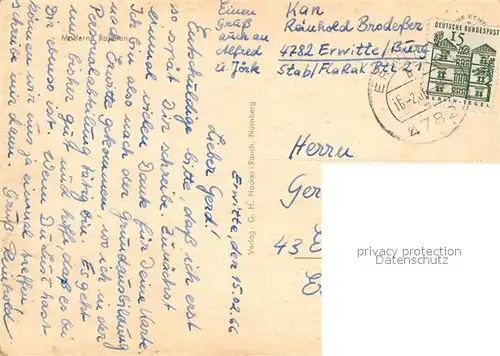 Einen
Gruß
auch an
Alfred
u. Jörk
Kan
Reinhold Brodeßer
4782 Erwitte/Burg
Stab/FlaRak Btl 21
DEUTSCHE BUNDESPOST
15
BERLIN-TEGEL
16.-2.
4782
Moderne Raritäten
Verlag: G. H. Hacker-Rauch, Nürnberg
Erwitte, den 15.02.66
Lieber Gerd!
Entschuldige bitte, daß ich erst
so spät Dir schreibe. Zunächst
einmal vielen Dank für Deine Karte.
Ich also nach der Grundausbildung
nach Erwitte gekommen, wo ich in der
Personalabteilung tätig bin. Es geht
mir bisher gut und hoffe, daß es bei
Dir ebenso ist. Wenn Du Lust hast
können wir uns ja einmal treffen
schreib mir dann.
Gruß Reinhold
Herrn
Ger
43 E
E
privacy protection
AnsichtskartenVersand.com